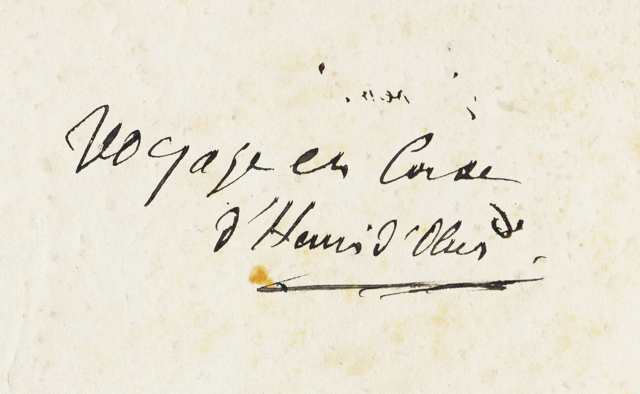 Voyage en Corse
d'Henri d'